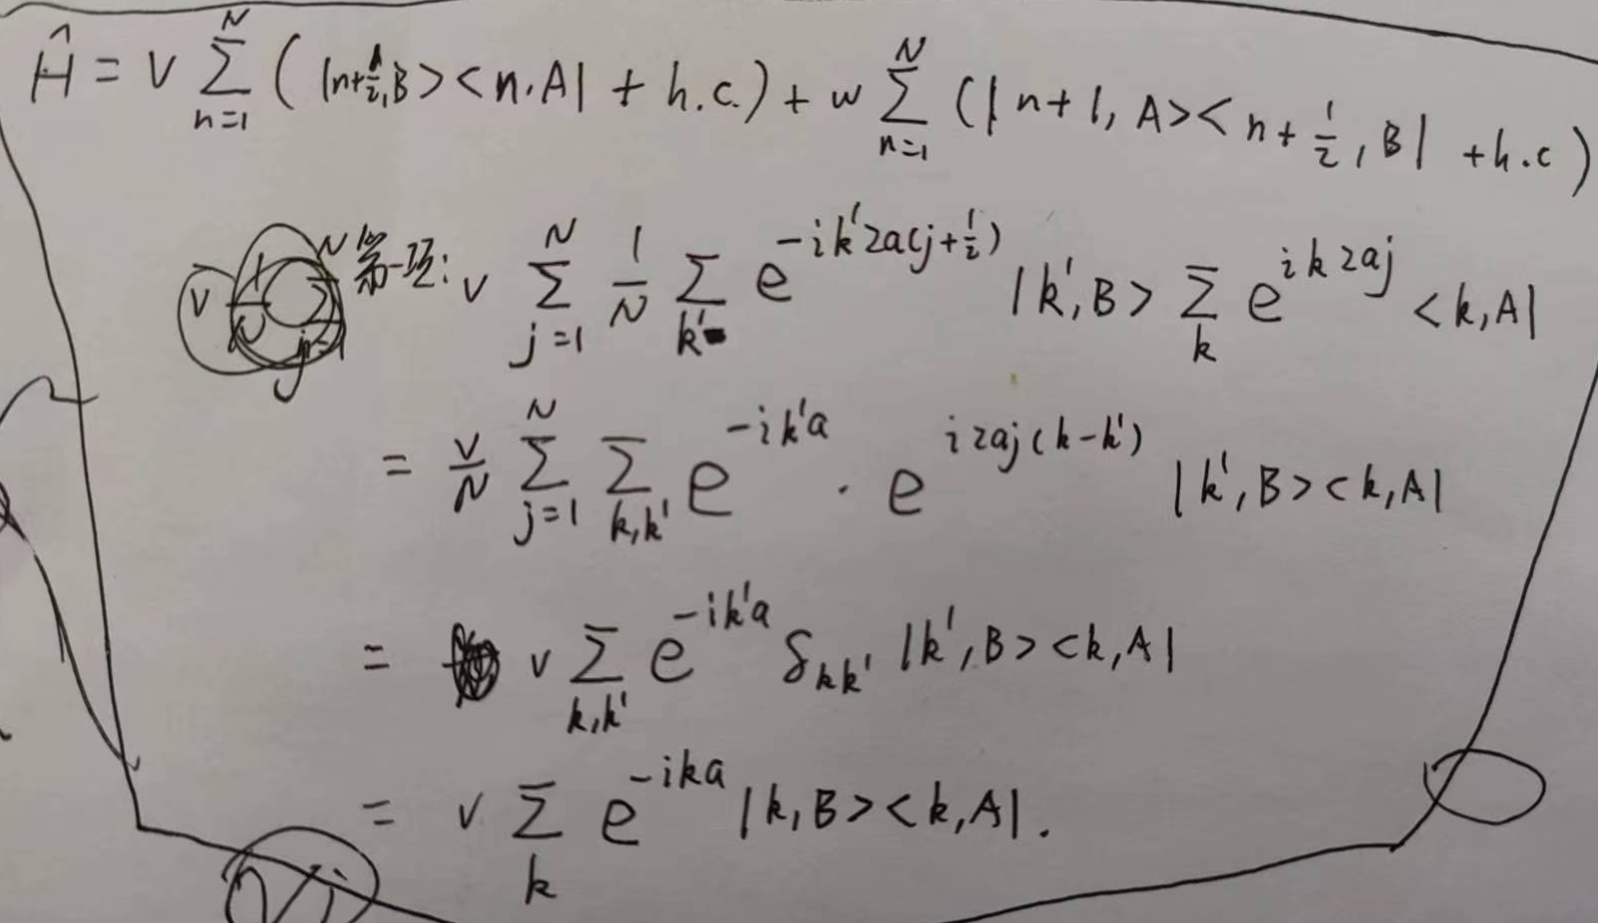 Ĥ = v ∑_{n=1}^{N} ( |n+½,B> <n,A| + h.c.) + w ∑_{n=1}^{N} (|n+1, A> <n+½, B| + h.c)
第一项: v ∑_{j=1}^{N} 1/N ∑_{k'} e^{-ik'2a(j+½)} |k',B> ∑_{k} e^{ik2aj} <k,A|
= v/N ∑_{j=1}^{N} ∑_{k,k'} e^{-ik'a} · e^{i2aj(k-k')} |k',B> <k,A|
= v ∑_{k,k'} e^{-ik'a} δ_{kk'} |k',B> <k,A|
= v ∑_{k} e^{-ika} |k,B> <k,A|.